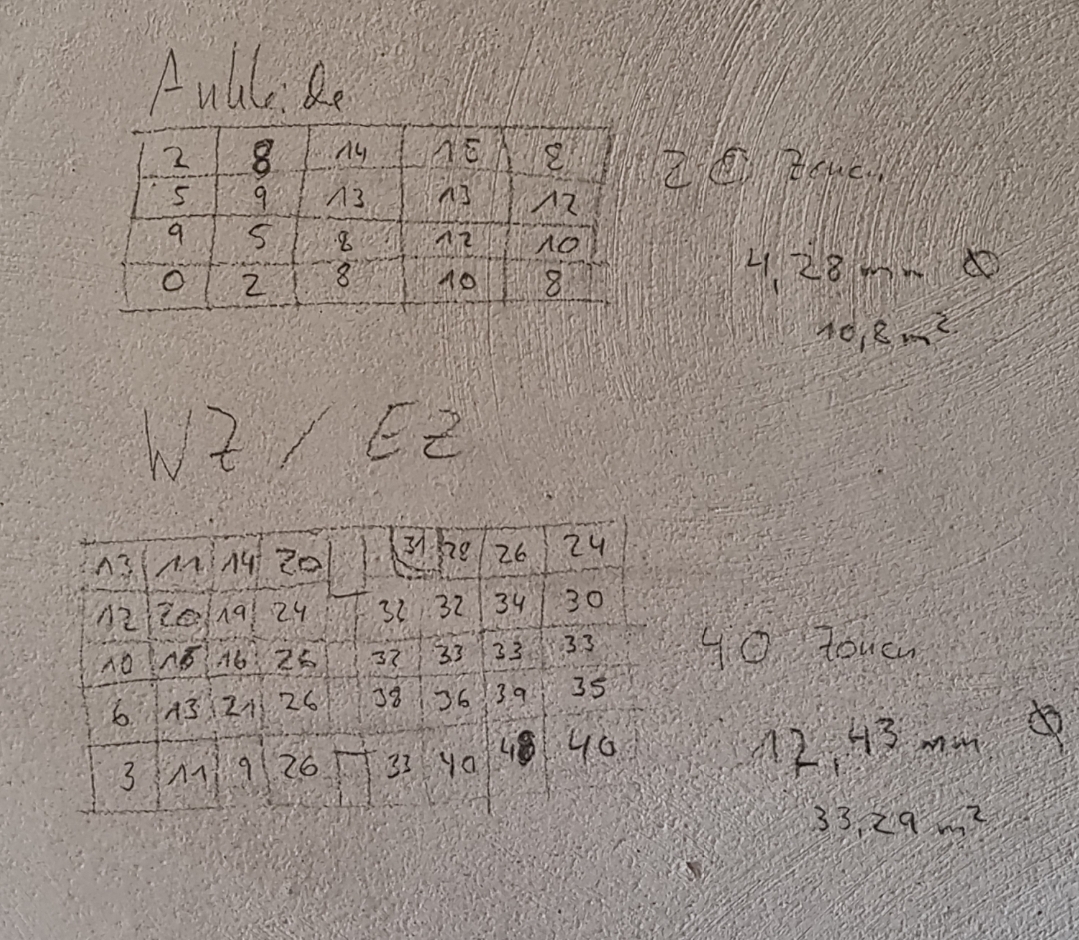 Ankleide
2 8 14 15 8
5 9 13 13 12
9 5 8 12 10
0 2 8 10 8
20 Zonen
4,28 mm Ø
10,8 m²
WZ / EZ
13 11 14 20 31 28 26 24
12 20 19 24 32 32 34 30
10 15 16 26 32 33 33 33
6 13 21 26 38 36 39 35
3 11 9 26 33 40 48 40
40 Zonen
12,43 mm Ø
33,29 m²